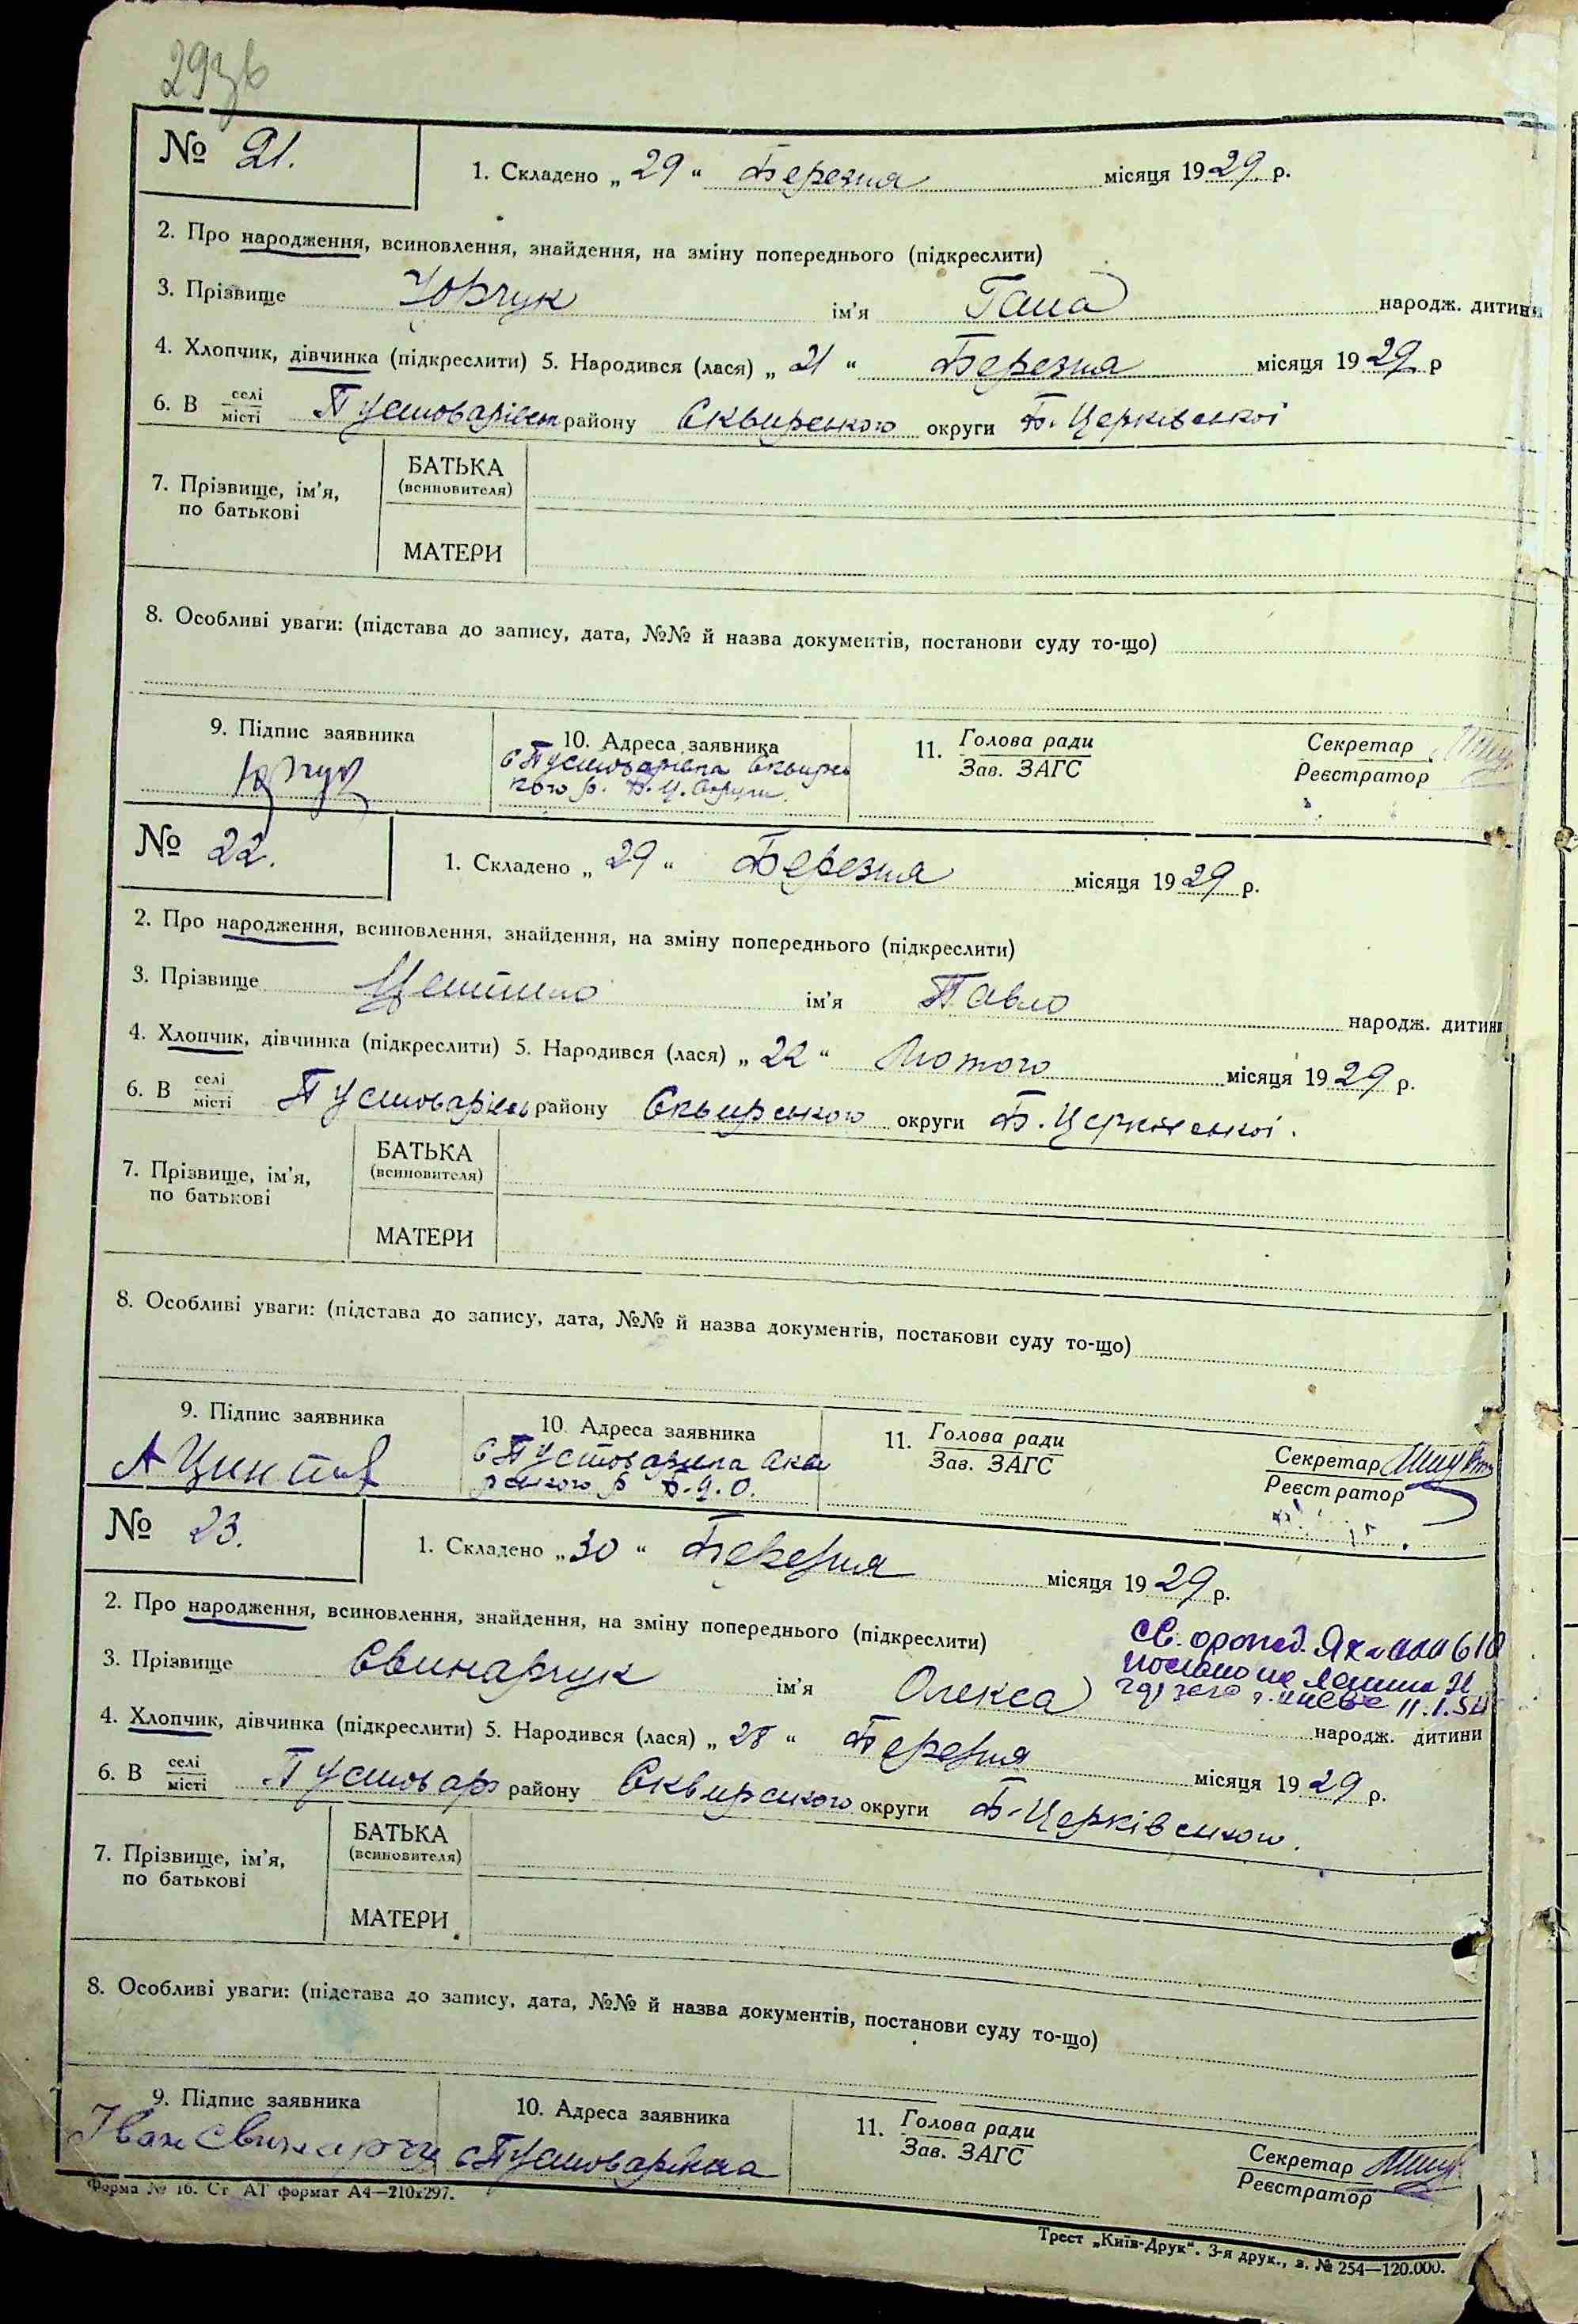 293в
№ 21.
1. Складено „ 29 “ Березня місяця 1929 р.
2. Про народження, всиновлення, знайдення, на зміну попереднього (підкреслити)
3. Прізвище Юрчук ім'я Гана народж. дитини
4. Хлопчик, дівчинка (підкреслити) 5. Народився (лася) „ 21 “ Березня місяця 1929 р
6. В селі місті Пустоварівськ району Сквирського округи Б. Церківської
7. Прізвище, ім'я, по батькові БАТЬКА (всиновителя)
МАТЕРИ
8. Особливі уваги: (підстава до запису, дата, №№ й назва документів, постанови суду то-що)
9. Підпис заявника 10. Адреса заявника 11. Голова ради Зав. ЗАГС Секретар Реєстратор
Юрчук с Пустоварівка Сквирсь
кого р. Б. Ц. Округи.
№ 22.
1. Складено „ 29 “ Березня місяця 1929 р.
2. Про народження, всиновлення, знайдення, на зміну попереднього (підкреслити)
3. Прізвище ім'я Павло народж. дитини
4. Хлопчик, дівчинка (підкреслити) 5. Народився (лася) „ 22 “ Лютого місяця 1929 р.
6. В селі місті Пустоварівсь району Сквирського округи Б. Церківської.
7. Прізвище, ім'я, по батькові БАТЬКА (всиновителя)
МАТЕРИ
8. Особливі уваги: (підстава до запису, дата, №№ й назва документів, постакови суду то-що)
9. Підпис заявника 10. Адреса заявника 11. Голова ради Зав. ЗАГС Секретар Реєстратор
с Пустоварівка Скви
рського р Б.Ц.О.
№ 23.
1. Складено „ 30 “ Березня місяця 1929 р.
2. Про народження, всиновлення, знайдення, на зміну попереднього (підкреслити)
3. Прізвище Свинарчук ім'я Олекса народж. дитини
11.1.54
4. Хлопчик, дівчинка (підкреслити) 5. Народився (лася) „ 28 “ Березня місяця 1929 р.
6. В селі місті Пустовар району Сквирського округи Б-Церківського.
7. Прізвище, ім'я, по батькові БАТЬКА (всиновителя)
МАТЕРИ
8. Особливі уваги: (підстава до запису, дата, №№ й назва документів, постанови суду то-що)
9. Підпис заявника 10. Адреса заявника 11. Голова ради Зав. ЗАГС Секретар Реєстратор
Іван Свинарчук с Пустоварівка
Форма № 16. Ст АТ формат А4—210x297.
Трест „Київ-Друк“. 3-я друк., з. № 254—120.000.